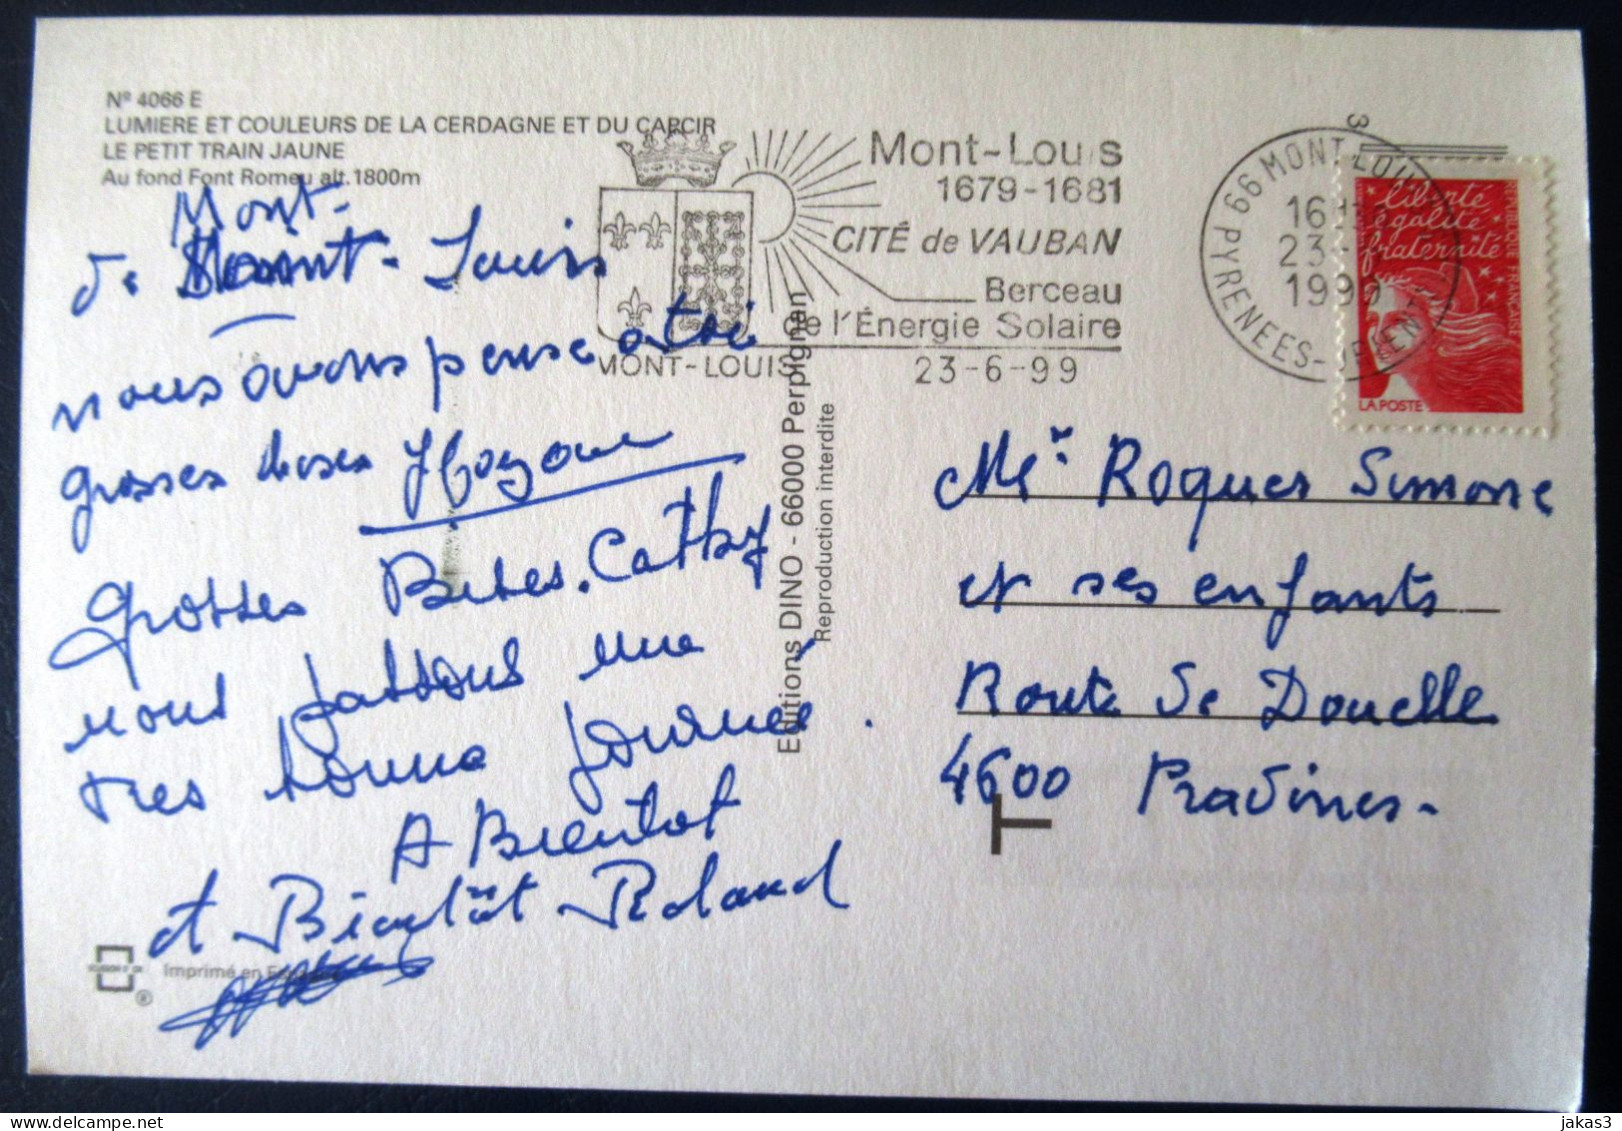 Nº 4066 E
LUMIERE ET COULEURS DE LA CERDAGNE ET DU CAPCIR
LE PETIT TRAIN JAUNE
Au fond Font Romeu alt. 1800m
Mont-
de Mont-Louis
nous avons pense a toi
grosses bises
Grosses Bises. Cathy
nous passons une
tres bonne journée.
A Bientot
et Bientôt Roland
Imprimé en
®
Editions DINO - 66000 Perpignan
Reproduction interdite
MONT-LOUIS
Mont-Louis
1679-1681
CITÉ de VAUBAN
Berceau
de l'Énergie Solaire
23-6-99
66 MONT LOUIS
16H
23-
1999
PYRENEES-ORIENTALES
3
liberté
égalité
fraternité
REPUBLIQUE FRANCAISE
LA POSTE
Me Roques Simone
et ses enfants
Route de Douelle
4600 Pradines-
T
jakas3